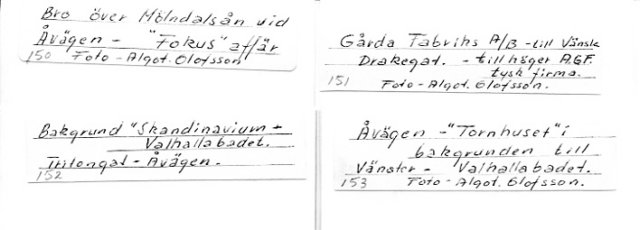 Bro över Mölndalsån vid
Åvägen - "Fokus" affär
150 Foto - Algot. Olofsson
Gårda Fabriks A/B - till Vänster
Drakegat. - till höger A.G.F.
tysk firma.
151 Foto - Algot. Olofsson.
Bakgrund "Skandinavium +
Valhallabadet.
Tritongat - Åvägen.
152
Åvägen - "Tornhuset" i
bakgrunden till
Vänster - Valhallabadet.
153 Foto - Algot. Olofsson.